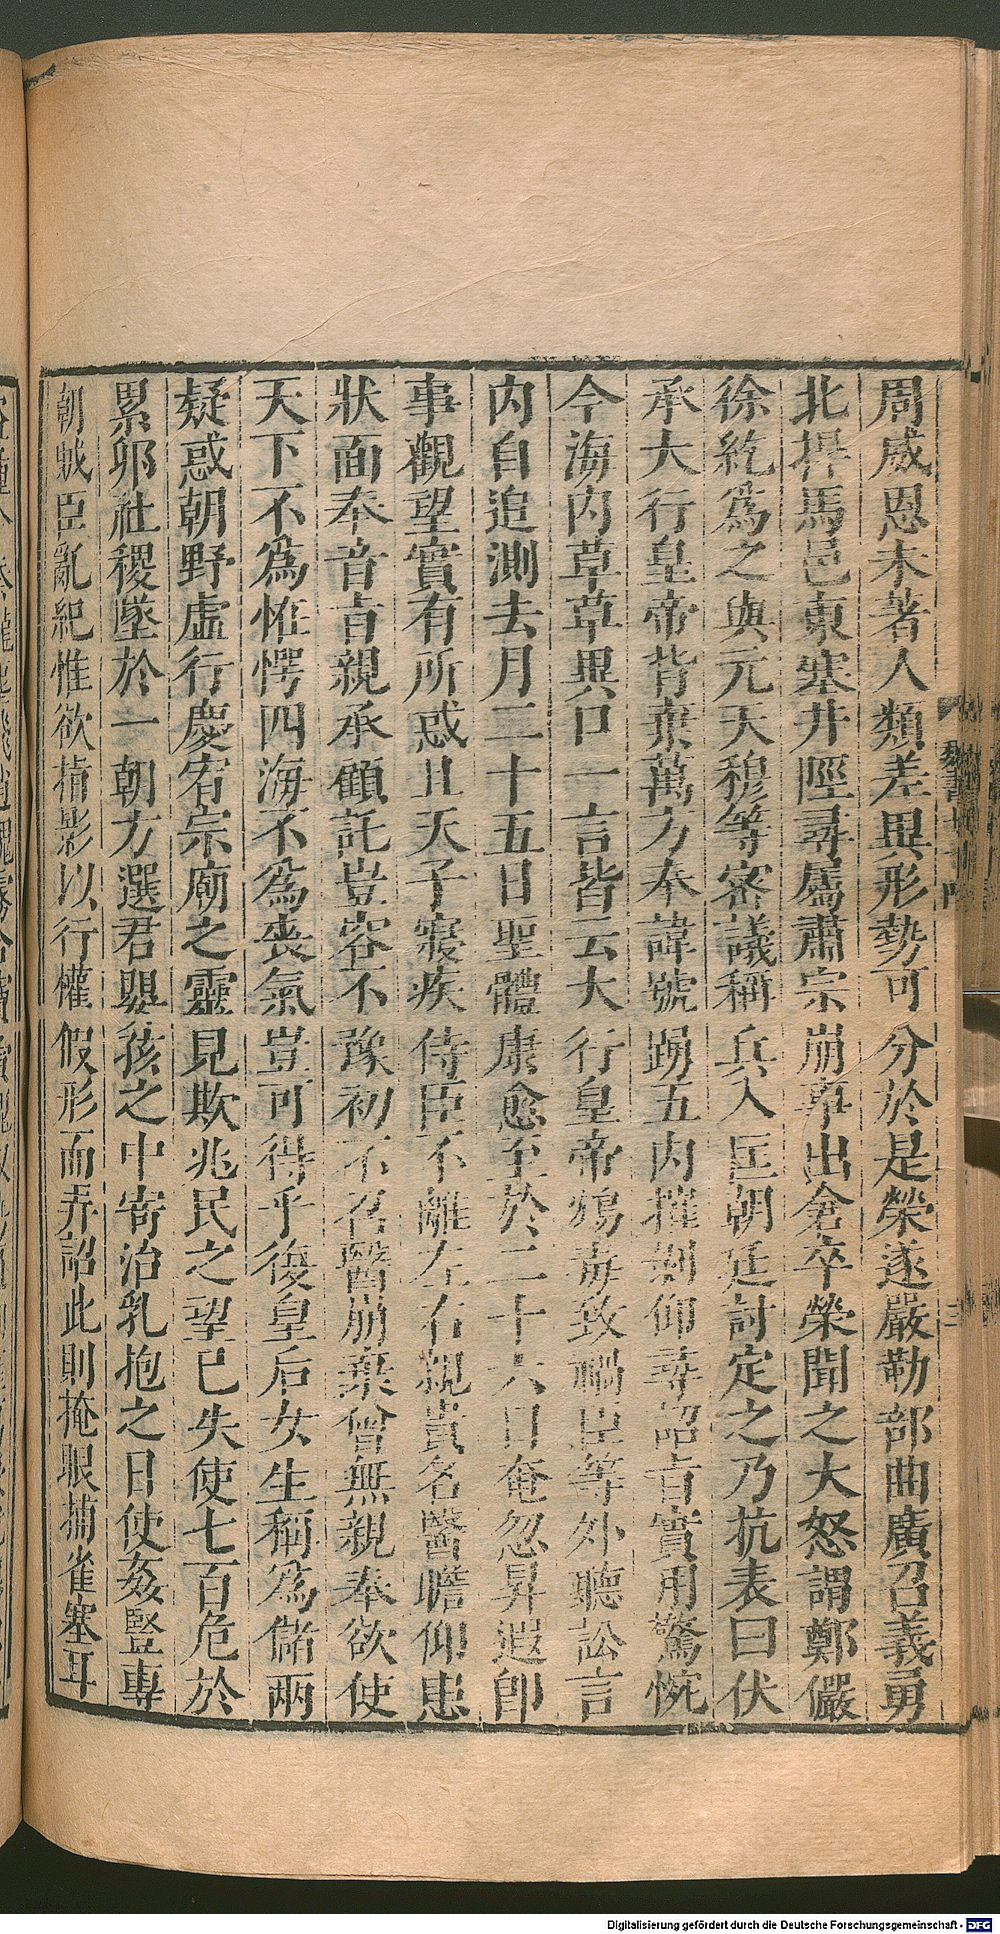 周威恩未著人類差異形勢可分於是榮遂嚴勒部曲廣召義勇
北捍馬邑東塞井陘尋屬肅宗崩事出倉卒榮聞之大怒謂鄭儼
徐紇為之與元天穆等密議稱兵入匡朝廷討定之乃抗表曰伏
承大行皇帝背棄萬方奉諱號踴五内摧剝仰尋詔旨實用驚惋
今海内草草異口一言皆云大行皇帝鴆毒致禍臣等外聽訟言
内自追測去月二十五日聖體康愈至於二十六日奄忽昇遐即
事觀望實有所惑且天子寢疾侍臣不離左右親貴名醫瞻仰患
狀面奉音旨親承顧託豈容不豫初不召醫崩棄曾無親奉欲使
天下不為恠愕四海不為喪氣豈可得乎後皇后女生稱為儲兩
疑惑朝野虛行慶宥宗廟之靈見欺兆民之望已失使七百危於
累卵社稷墜於一朝方選君嬰孩之中寄治乳抱之日使姦豎專
朝賊臣亂紀惟欲指影以行權假形而弄詔此則掩眼捕雀塞耳
魏書七十四
三
Digitalisierung gefördert durch die Deutsche Forschungsgemeinschaft - DFG